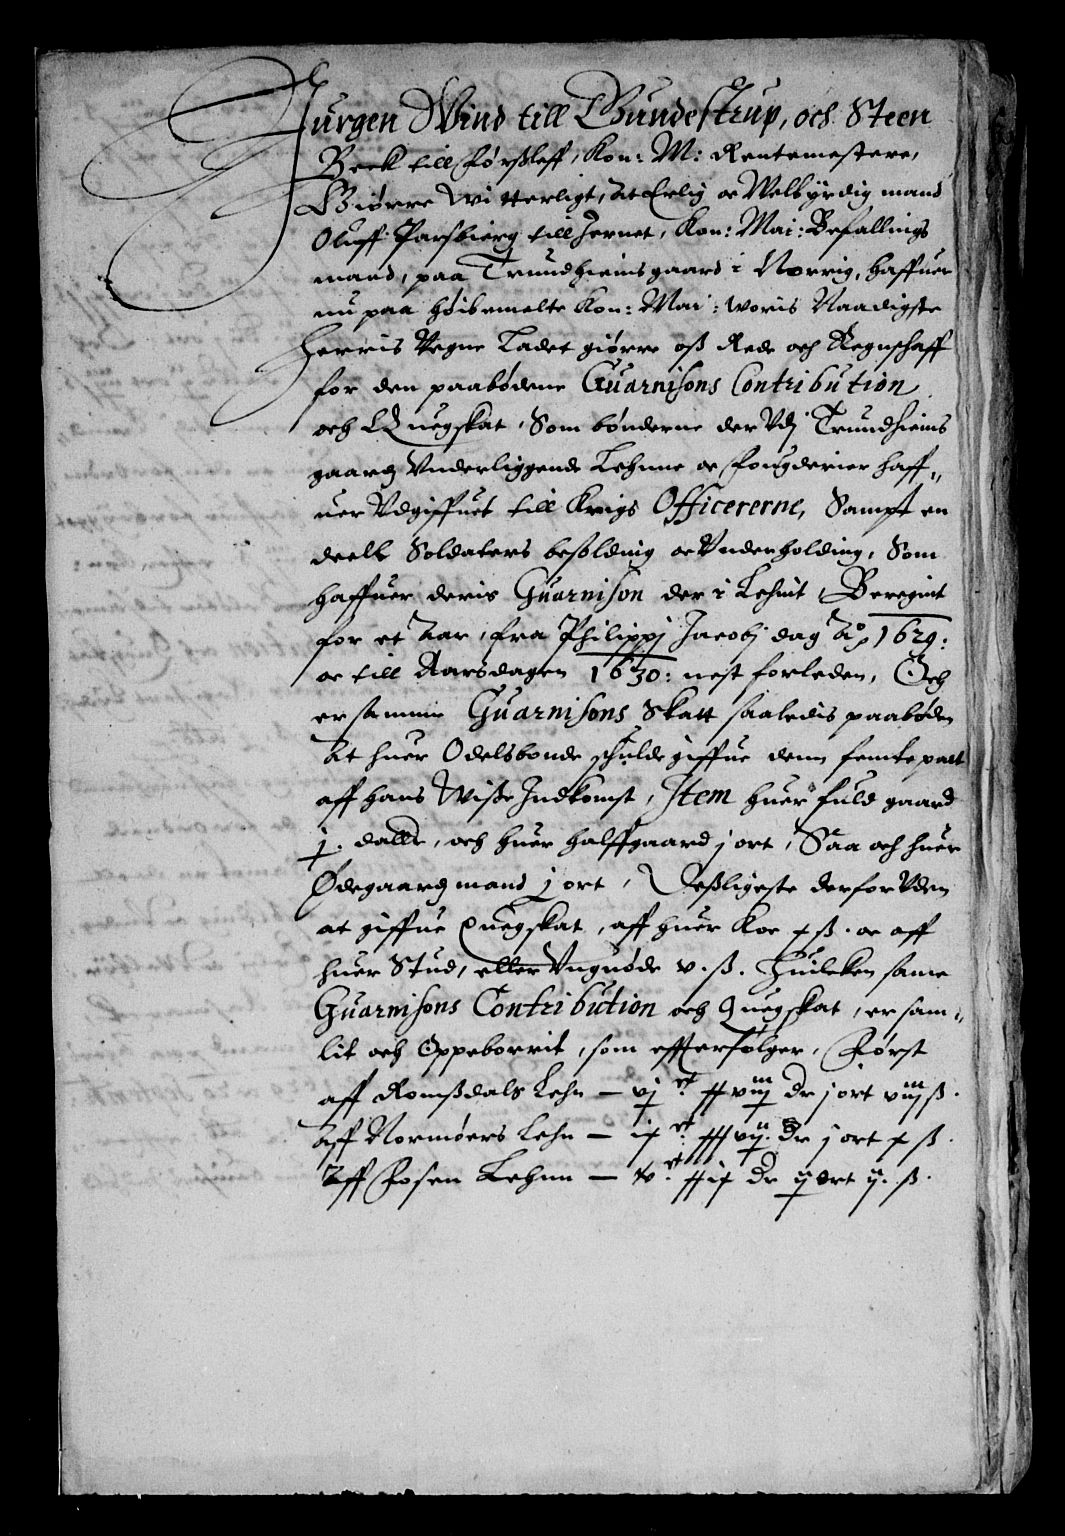 Jurgen Wind till Gundestrup, och Steen
Beck till Førßleff, Kon: M: Rentemestere,
Giørre Witterligt, At Erlig oc Welbyrdig mand
Oluff Parsbierg till Jernet, Kon: Mai: Befallings
mand, paa Trundhiems gaard i Norrig, haffuer
nu paa høibemelte Kon: Mai: woris Naadigste
Herris Vegne Ladet giørre oß Rede och Regnschaff
for den paabødene Guarnisons Contribution
och Quegskat, Som bønderne der Vdj Trundhiems
gaardz Vnderliggende Lehnne oc fougderier haff„
uer Vdgiffuet till Krigs Officererne, Sampt en
deell Soldaters besolding oc Vnderholding, Som
haffuer deris Guarnison der i Lehnit, Beregnit
for et Aar, fra Philippj Jacobj dag Ao 1629:
oc till Aarsdagen 1630: nest forleden, Och
er samme Guarnisons Skatt saaledis paabøden
At huer Odelsbonde schulde giffue denn femte part
aff hans Wiße Indkomst, Item huer fuld gaard
j. daller, och huer halffgaard j ort, Saa och huer
Ødegaardz mand j ort, Deßligeste derforVden
at giffue Quegskat, aff huer Koe x ß. oc aff
huer Stud, eller Vngnøde v. ß. Huilcken same
Guarnisons Contribution och Quegskat, er sam„
lit och Oppeborrit, som effterfølger, Først
aff Romßdals Lehn — vj ct. xxviij dr j ort viij ß.
Aff Normøers Lehn — ix ct. xxxvij. dr j ort x ß.
Aff Fosen Lehnn — v. ct. xxix dr ij ort ij. ß.